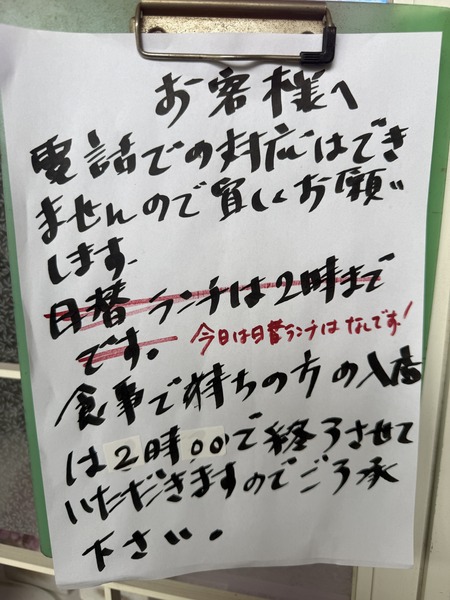 お客様へ
電話での対応はでき
ませんので宜しくお願い
します。
日替ランチは2時まで
です。
今日は日替ランチはなしです!
食事で待ちの方の入店
は2時00で終了させて
いただきますのでご了承
下さい。